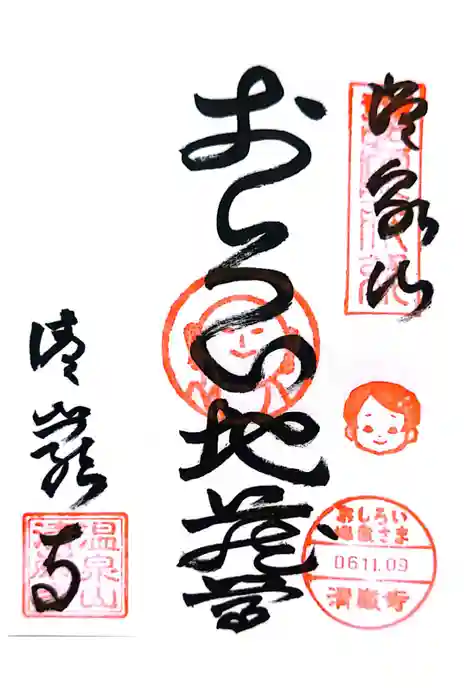 温泉山
おしろい地蔵尊
清巌寺
おしろい
地蔵さま
06.11.09
清巌寺
温泉山
清巌寺